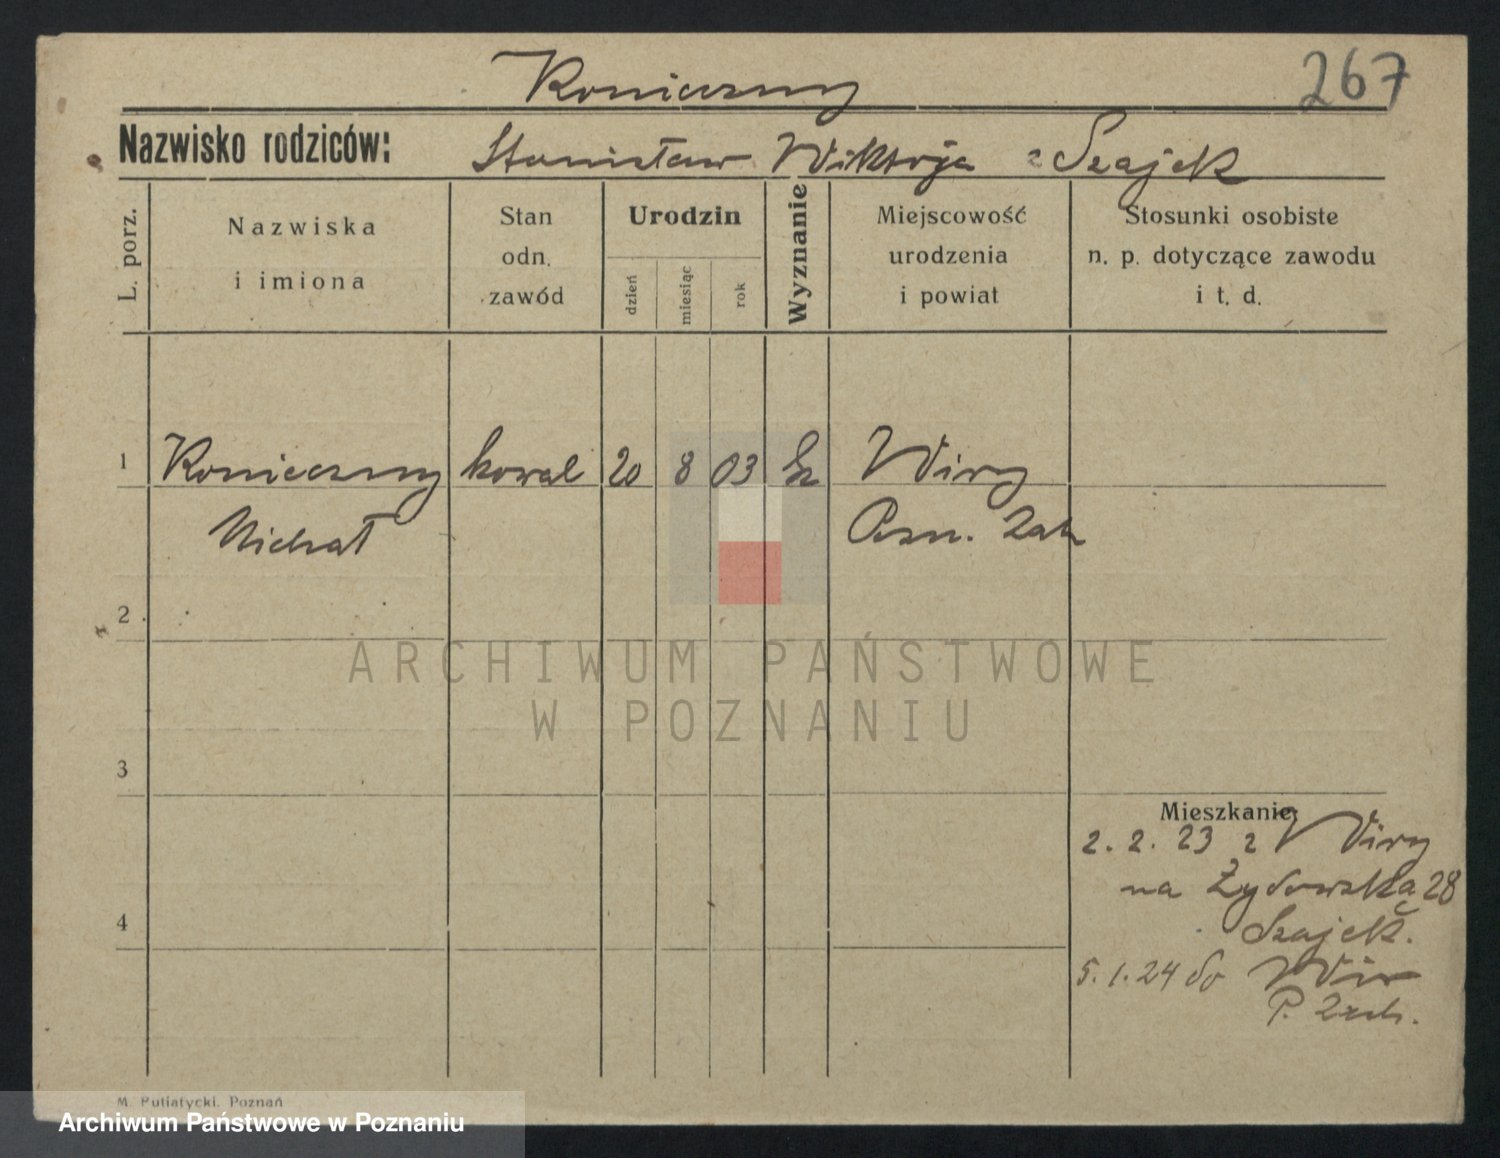 Konieczny
267
Nazwisko rodziców: Stanisław Wiktorja z Szajek
L. porz.
Nazwiska
i imiona
Stan
odn.
zawód
Urodzin
dzień
miesiąc
rok
Wyznanie
Miejscowość
urodzenia
i powiat
Stosunki osobiste
n. p. dotyczące zawodu
i t. d.
1 Konieczny kowal 20 8 03 Wiry
Michał Pozn. Zach
2
ARCHIWUM PAŃSTWOWE
W POZNANIU
3
Mieszkanie:
2. 2. 23 z Wiry
na Żydowska 28
Szajek.
4
5. 1. 24 do Wir
P. Zach.
M. Putiatycki. Poznań
Archiwum Państwowe w Poznaniu